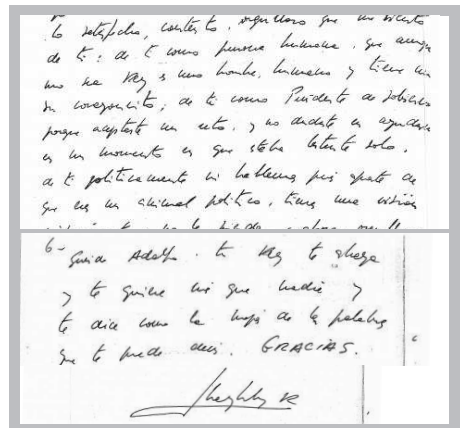 lo satisfecho, contento, orgulloso que me siento
de ti: de ti como persona humana, que aunque
no sea Rey es uno hombre, humano y tiene
su corazoncito; de ti como Presidente de Gobierno
porque aceptaste un reto, y no dudaste en ayudarme
en un momento en que estaba bastante solo.
de ti políticamente ni hablemos pues aparte de
que eres un animal político, tienes una visión
6- Querido Adolfo. tu Rey te abraza
y te quiere más que nadie y
te dice como la mejor de las palabras
que te puede decir. GRACIAS.